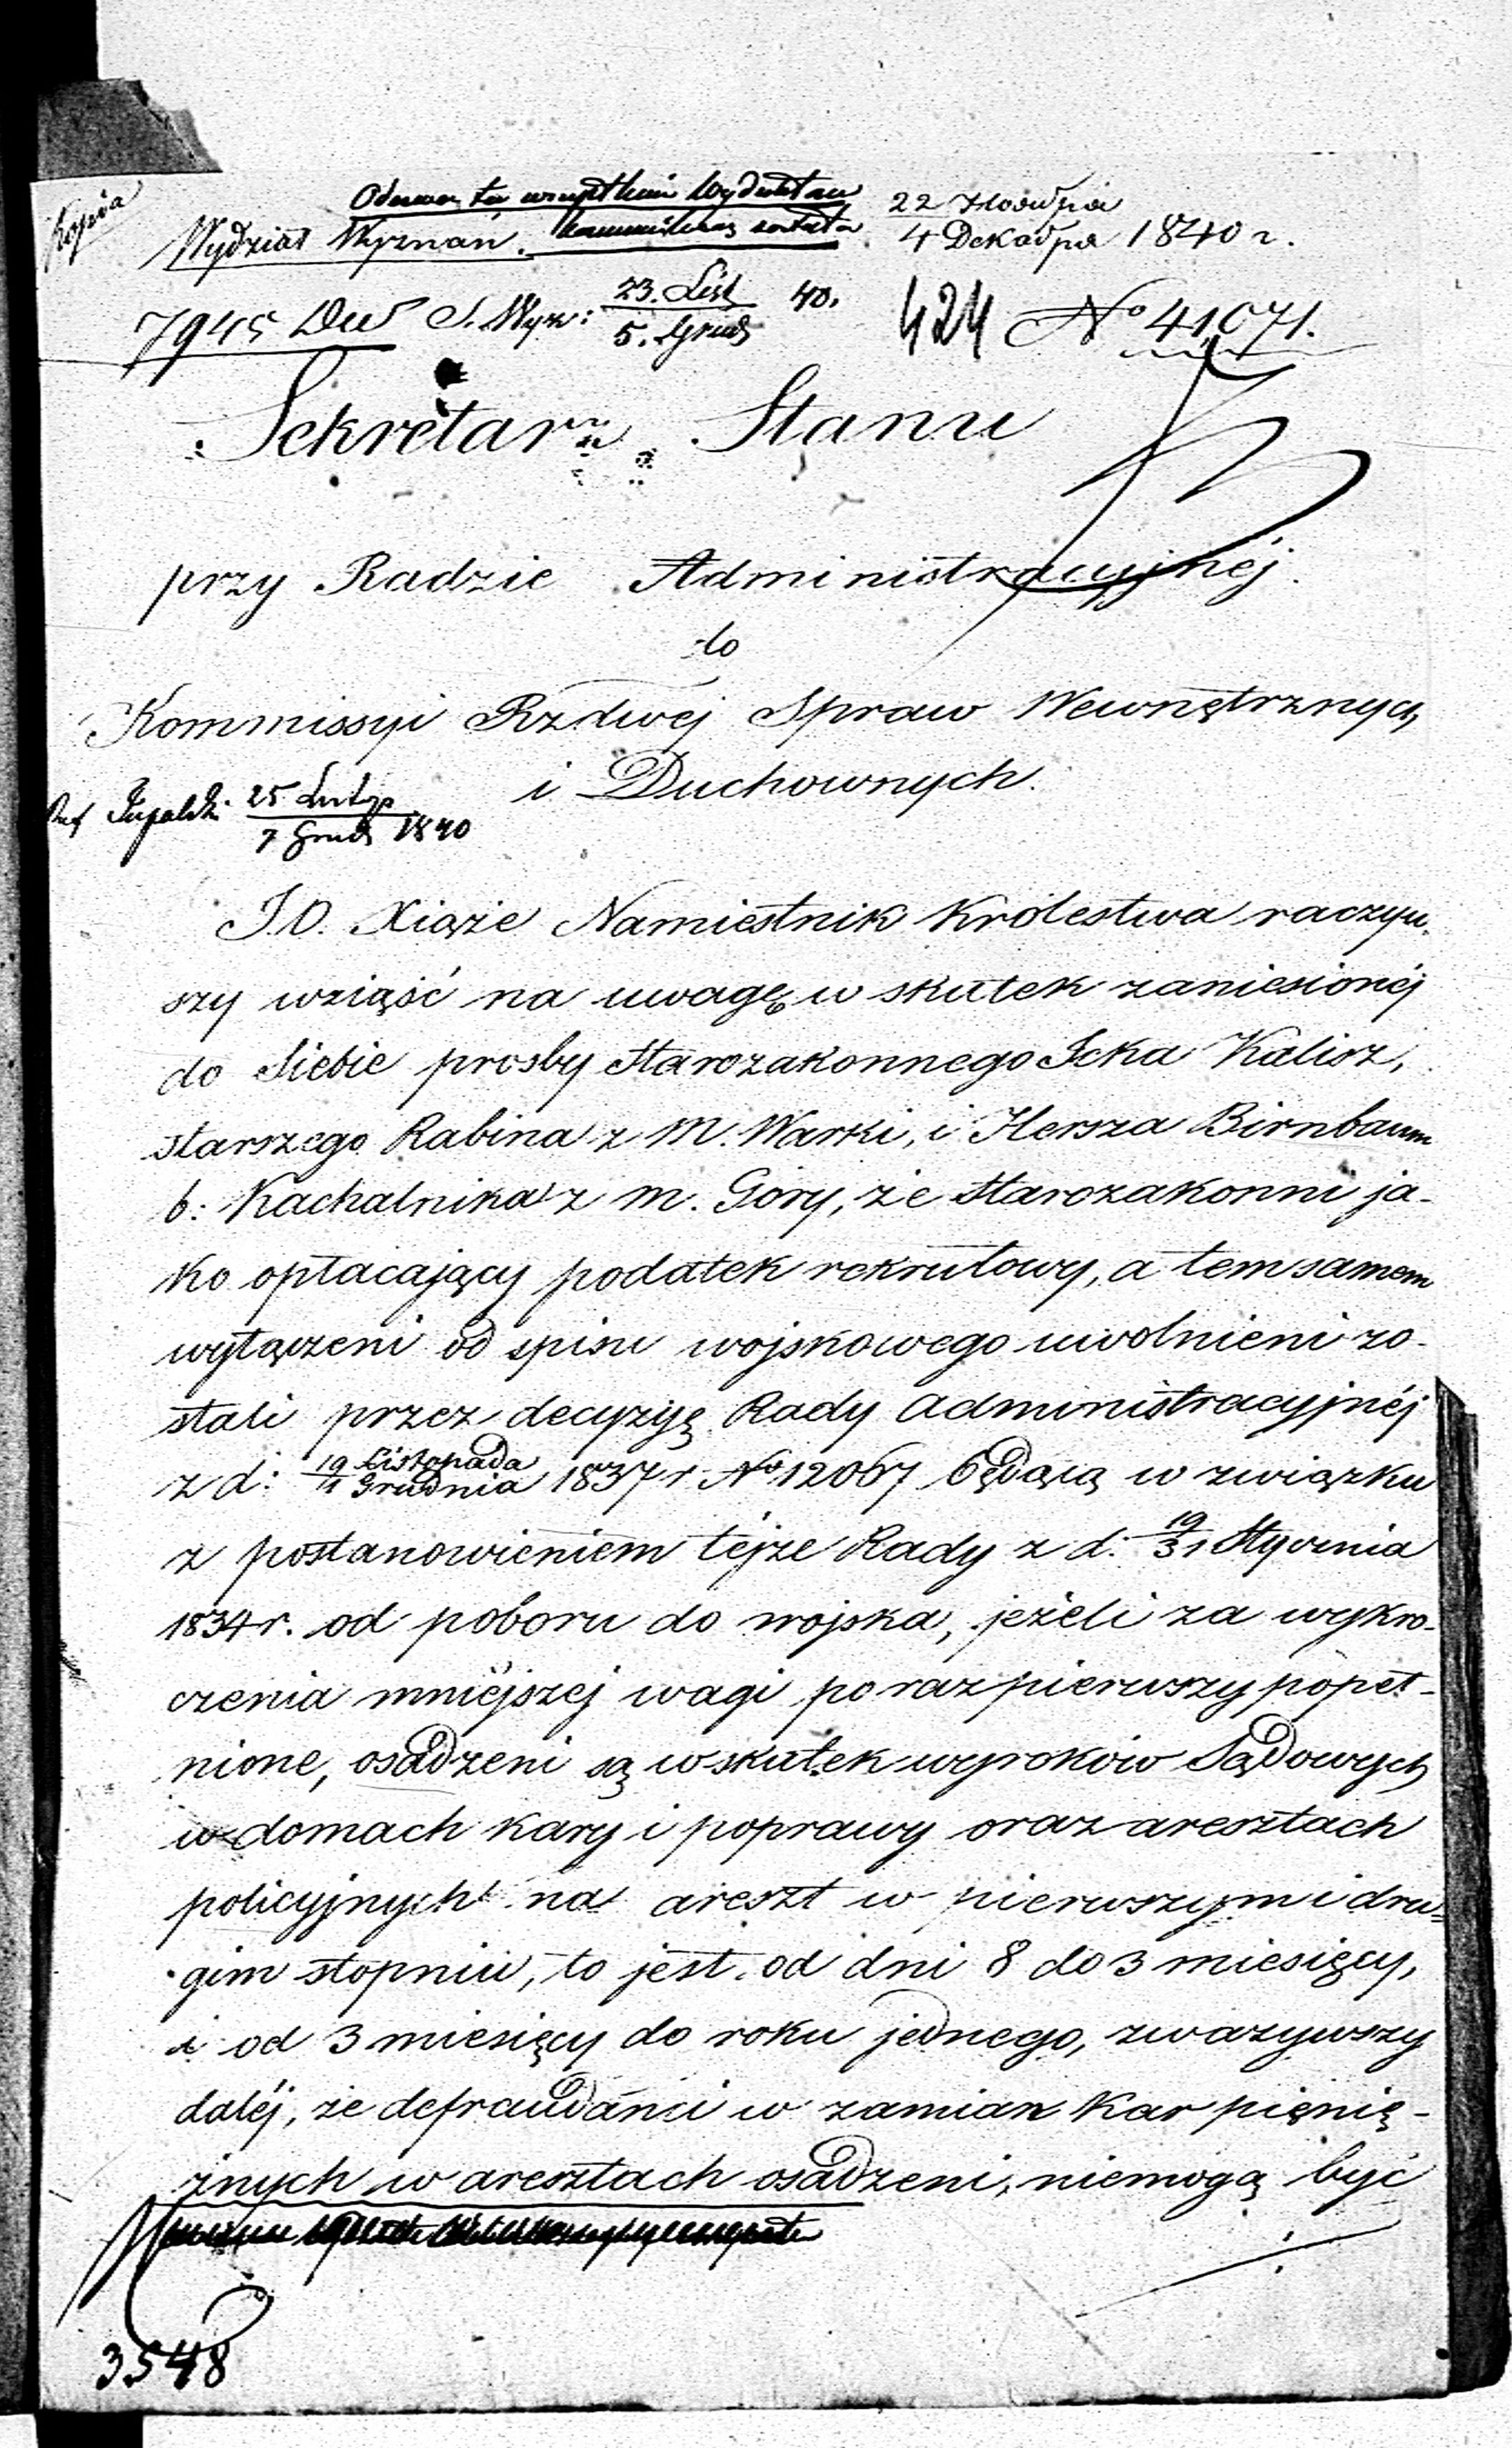 Kopia
Odezwa ta wszystkim Wydziałom
Wydział Wyznań. kommunikowaną została
22 Ноября
4 Декабря 1840 г.
7945 Dw S. Wyzn: 23. List / 5. Grud 40.
424 No 41071.
Sekretarz Stanu
przy Radzie Administracyjnéj
do
Kommissyi Rządwej Spraw Wewnętrznych
i Duchownych.
25 / 7 Grud 1840
J.O. Xiąże Namiestnik Królestwa raczyw-
szy wziąść na uwagę w skutek zaniesionéj
do Siebie prosby Starozakonnego Icka Kalisz,
starszego Rabina z M. Warki, i Hersza Birnbaum
b: Kachalnika z m. Góry, że Starozakonni ja-
ko opłacający podatek rekrutowy, a tem samem
wyłączeni od spisu wojskowego uwolnieni zo-
stali przez decyzyę Rady Administracyjnéj
z d: 19 Listopada / 1 Grudnia 1837 r No 12067 będącą w związku
z postanowieniem téjże Rady z d. 19/31 Stycznia
1834 r. od poboru do wojska, jeżeli za wykro-
czenia mniéjszej wagi po raz pierwszy popeł-
nione, osadzeni są w skutek wyroków Sądowych
w domach kary i poprawy oraz aresztach
policyjnych na areszt w pierwszym i dru-
gim stopniu, to jest od dni 8 do 3 miesięcy,
i od 3 miesięcy do roku jednego, zważywszy
daléj, że defraudanci w zamian kar pienię-
żnych w aresztach osadzeni, niemogą być
3548